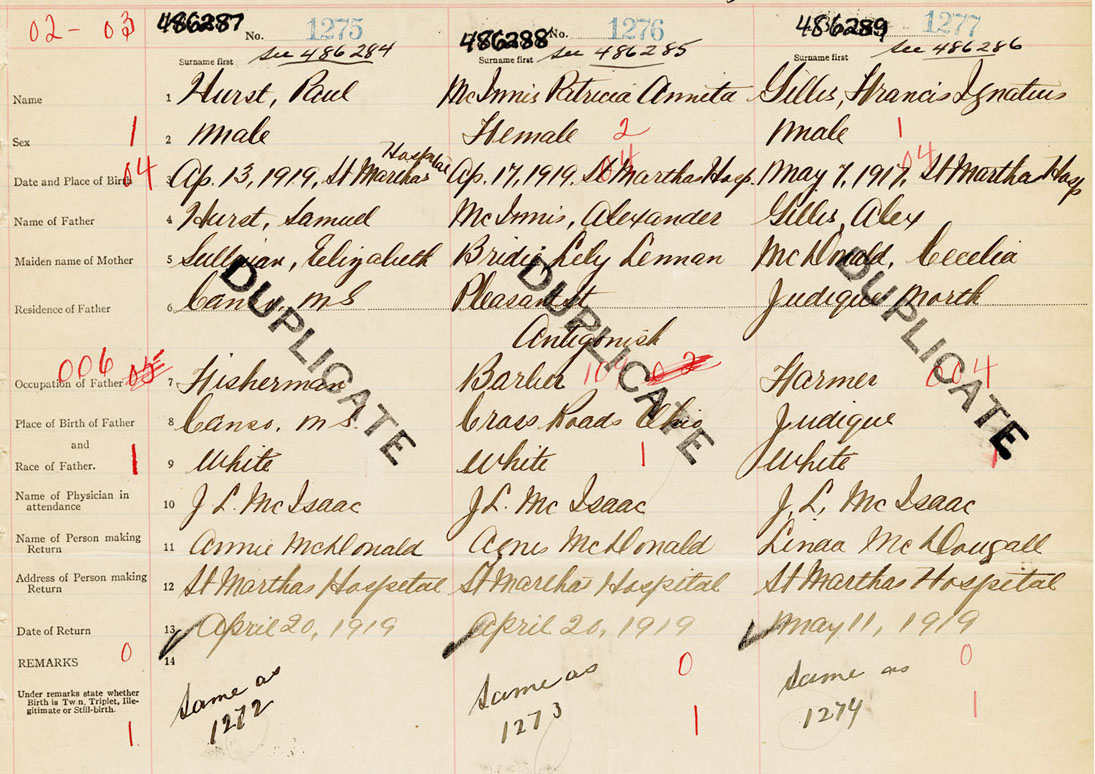 02-03 486287 No. 1275 486288 No. 1276 486289 No. 1277
see 486284 see 486285 see 486286
Surname first Surname first Surname first
Name 1 Hurst, Paul McInnis Patricia Annita Gillis, Francis Ignatius
Sex 1 2 Male Female 2 Male 1
Hospital
Date and Place of Birth 04 3 Ap. 13, 1919, St Marthas Ap. 17, 1919. St Marthas Hosp. 04 May 7, 1919, St Marthas Hosp 04
Name of Father 4 Hurst, Samuel McInnis, Alexander Gillis, Alex
Maiden name of Mother 5 Sullivan, Elizabeth Bridie Lily Lennan McDonald, Cecelia
Residence of Father 6 Canso, N S Pleasant St Judique North
Antigonish
Occupation of Father 006 7 Fisherman Barber Farmer 004
Place of Birth of Father 8 Canso, N S. Cross Roads Judique
and
Race of Father. 1 9 White White 1 White 1
Name of Physician in attendance 10 J L. McIsaac J L. McIsaac J. L. McIsaac
Name of Person making Return 11 Annie McDonald Agnes McDonald Linda McDougall
Address of Person making Return 12 St Marthas Hospetal St Marthas Hospital St Marthas Hospetal
Date of Return 13 April 20, 1919 April 20, 1919 May 11, 1919
REMARKS 0 14 0 0
Under remarks state whether Birth is Twin, Triplet, Illegitimate or Still-birth.
1 Same as 1272 Same as 1273 1 Same as 1274 1
DUPLICATE DUPLICATE DUPLICATE